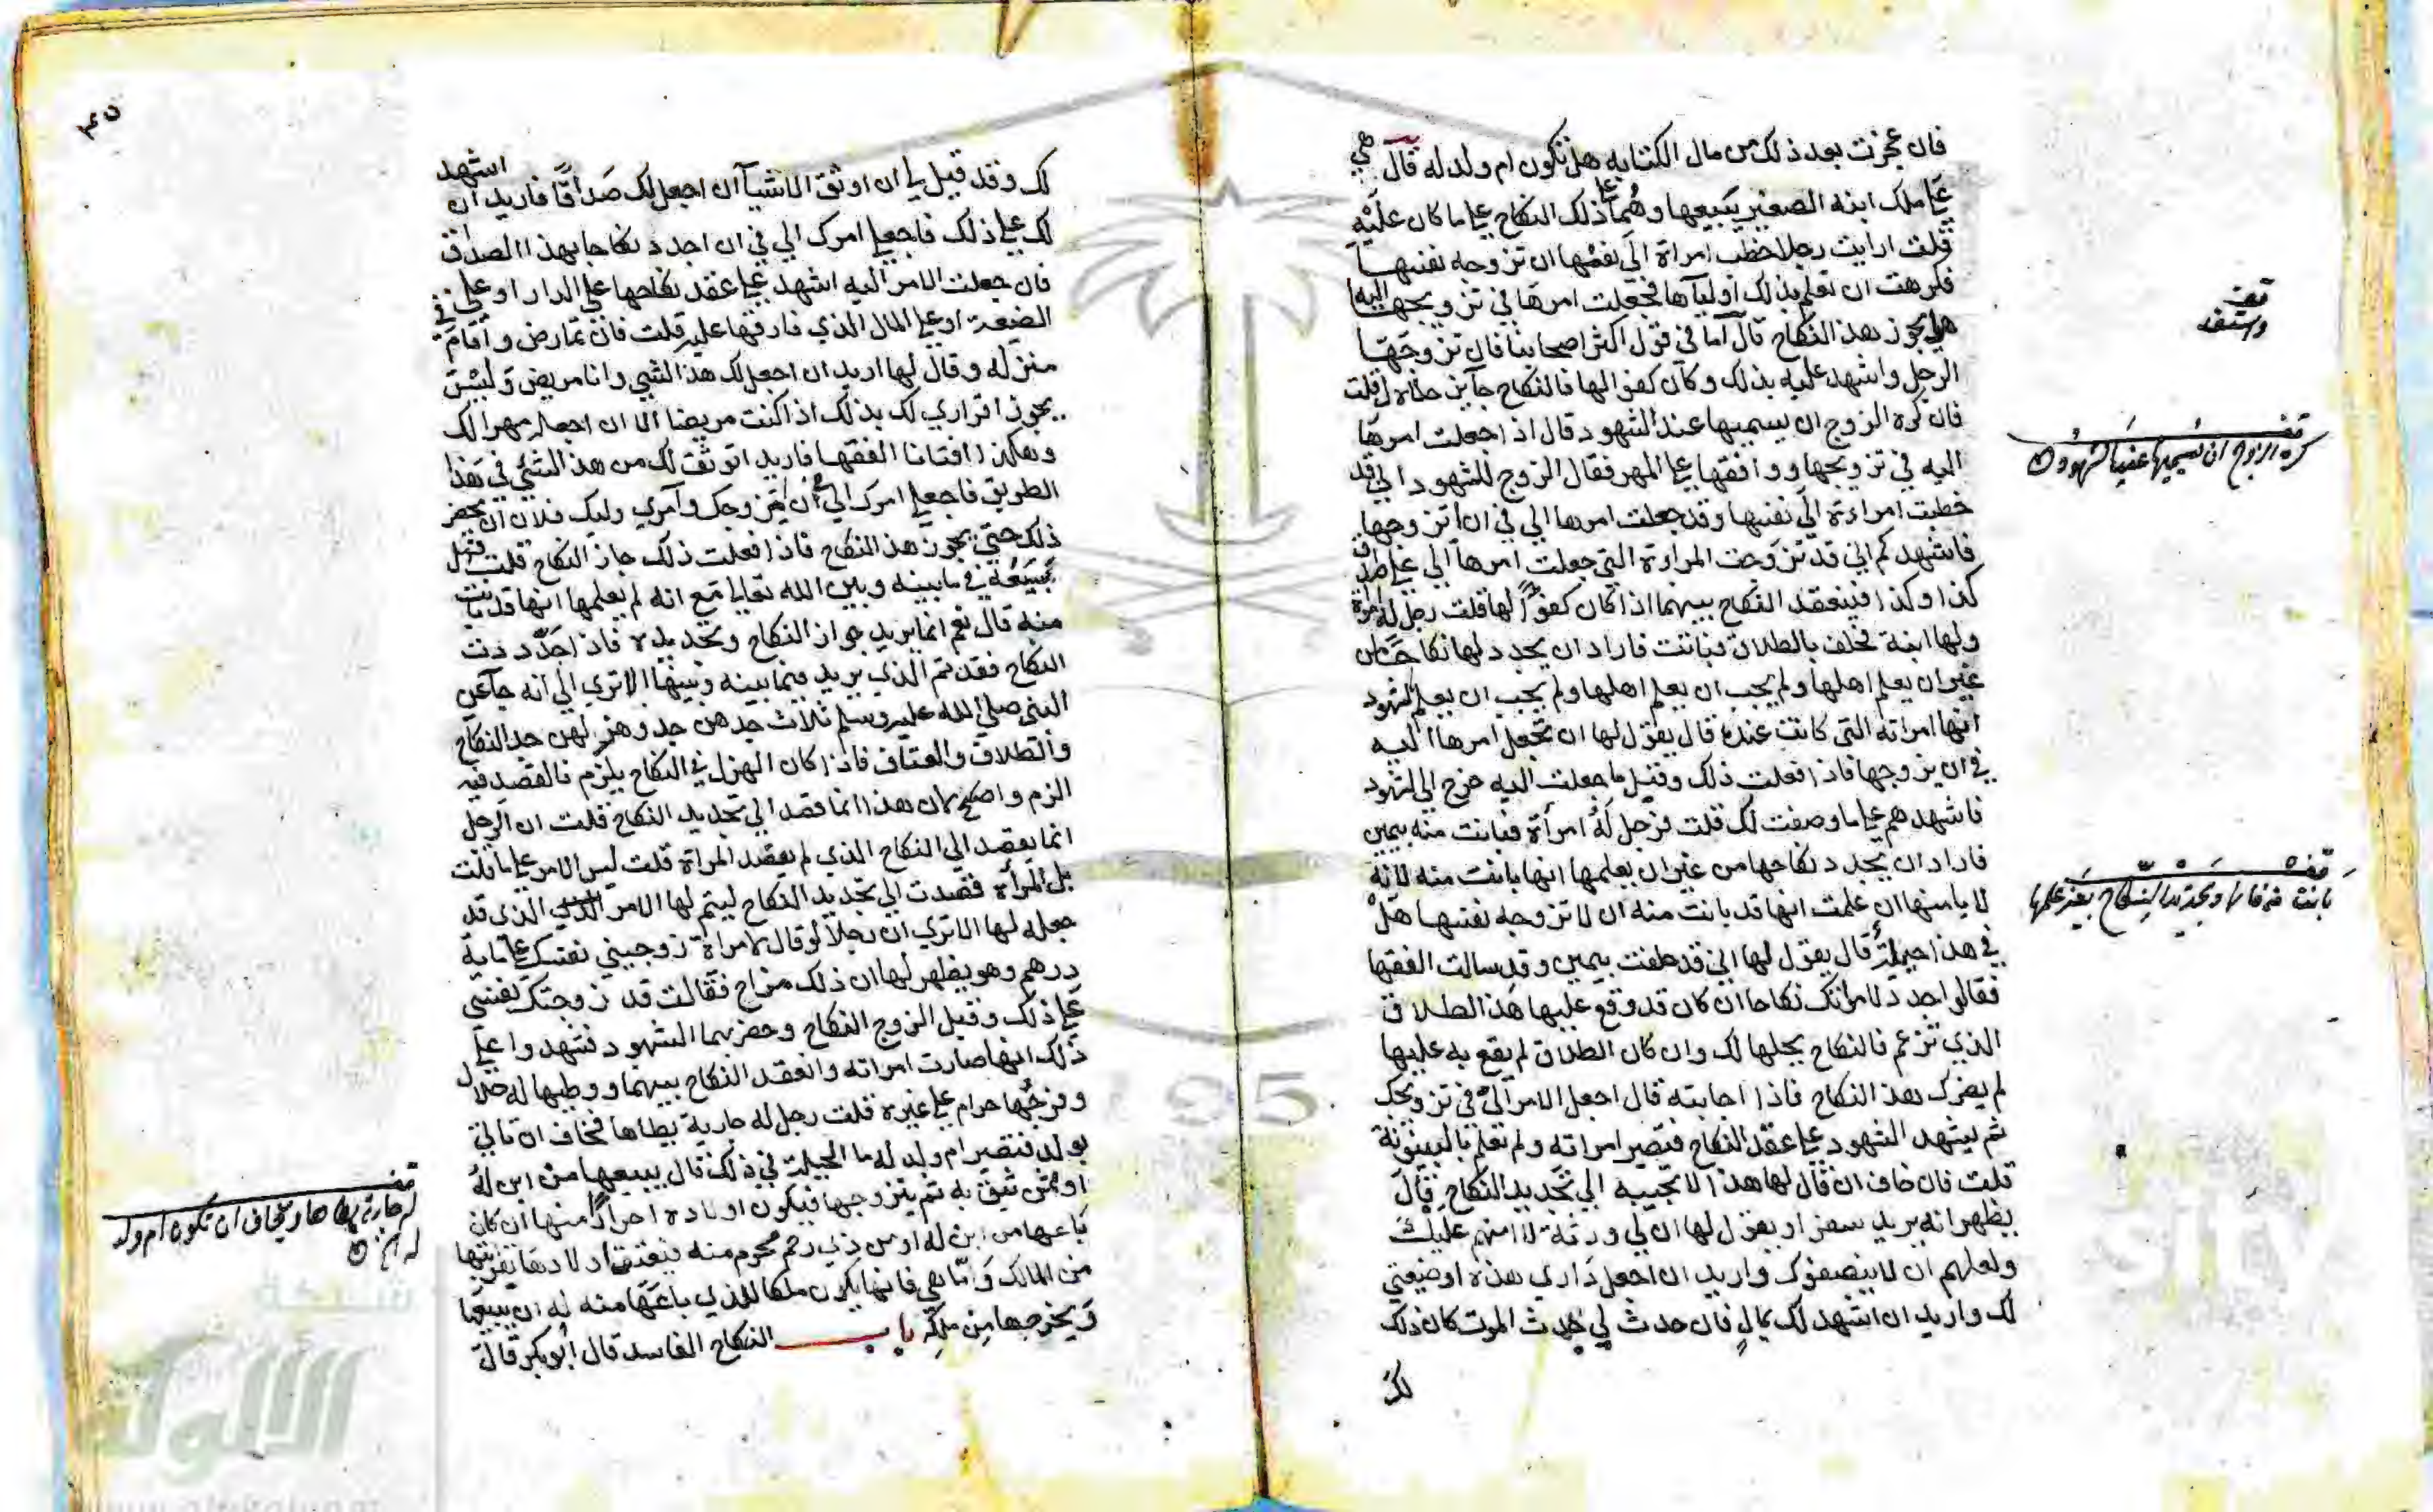 فان عجزت بعد ذلك من مال الكتابه هل تكون ام ولد له قال هي
على ملك ابنه الصغير يبيعها وهما على ذلك النكاح على ما كان عليه
قلت ارايت رجلا خطب امراة الى نفسها ان تزوجه نفسها
فكرهت ان تعلم بذلك اولياها فجعلت امرها في تزويجها اليه
هل يجوز هذا النكاح قال اما في قول اكثر اصحابنا فان تزوجها
الرجل واشهد عليه بذلك وكان كفوا لها فالنكاح جايز قلت
فان كره الزوج ان يسميها عند الشهود قال اذا جعلت امرها
اليه في تزويجها ووافقها على المهر فقال الزوج للشهود اني قد
خطبت امراءة الى نفسها وقد جعلت امرها الي في ان اتزوجها
فاشهدكم اني قد تزوجت المراءة التي جعلت امرها الي على صداق
كذا وكذا فينعقد النكاح بينهما اذا كان كفوا لها قلت رجل له امراة
ولها ابنة فحلف بالطلاق فبانت فاراد ان يجدد لها نكاحا من
غير ان يعلم اهلها ولم يجب ان يعلم اهلها ولم يجب ان يعلم الشهود
انها امراته التي كانت عنده قال يقول لها ان تجعل امرها اليه
في ان يزوجها فاذا فعلت ذلك وقبل ما جعلت اليه خرج الى الشهود
فاشهدهم على ما وصفت لك قلت فرجل له امراة فبانت منه بيمين
فاراد ان يجدد نكاحها من غير ان يعلمها انها بانت منه لانه
لا يامنها ان علمت انها قد بانت منه ان لا تزوجه نفسها هل
في هذا حيلة قال يقول لها اني قد حلفت بيمين وقد سالت الفقها
فقالوا جدد لامراتك نكاحا ان كان قد وقع عليها هذا الطلاق
الذي تزعم فالنكاح يحلها لك وان كان الطلاق لم يقع به عليها
لم يضرك هذا النكاح فاذا اجابته قال اجعل الامر الي في تزويجك
ثم يشهد الشهود على عقد النكاح فتصير امراته ولم تعلم بالبينونة
قلت فان خاف ان قال لها هذا الا تجيبه الى تجديد النكاح قال
يظهر انه يريد سفرا ويقول لها ان لي ورثة لا امنهم عليك
ولعلهم ان لا ينصفوك واريد ان اجعل داري هذه او ضيعتي
لك واريد ان اشهد لك بمال فان حدث لي حدث الموت كان ذلك
لك
قف
كره الزوج ان يسميها عند الشهود
قف
بانت منه فاراد تجديد النكاح بغير علمها
لك وقد قيل لي ان اوثق الاشيا ان اجعل لك صداقا فاريد ان اشهد
لك على ذلك فاجعلي امرك الي في ان اجدد نكاحا بهذا الصداق
فان جعلت الامر اليه اشهد على عقد نكاحها على الدار او على
الضيعة او على المال الذي فارقها عليه قلت فان تمارض واقام في
منزله وقال لها اريد ان اجعل لك هذا الشي وانا مريض وليس
يجوز اقراري لك بذلك اذا كنت مريضا الا ان اجعله مهرا لك
وهكذا افتانا الفقها فاريد اتوثق لك من هذا الشي في هذا
الطريق فاجعلي امرك الي في ان اتزوجك وآمري وليك فلان ان يحضر
ذلك حتى يجوز هذا النكاح فاذا فعلت ذلك جاز النكاح قلت فهل
يسعه في ما بينه وبين الله تعالى مع انه لم يعلمها انها قد بانت
منه قال نعم انما يريد جواز النكاح وتجديده فاذا جددت
النكاح فقد تم الذي يريد فيما بينه وبينها الا ترى الى انه جا عن
النبي صلى الله عليه وسلم ثلاث جدهن جد وهزلهن جد النكاح
والطلاق والعتاق فاذا كان الهزل في النكاح يلزم فالقصد فيه
الزم واصح لان هذا انما قصد الى تجديد النكاح قلت ان الرجل
انما يقصد الى النكاح الذي لم يقصد المراة قلت ليس الامر على ما قلت
بل المرأة قصدت الى تجديد النكاح ليتم لها الامر الذي قد
جعله لها الا ترى ان رجلا لو قال لامراة زوجيني نفسك على ماية
درهم وهو يظهر لها ان ذلك مزاح فقالت قد زوجتك نفسي
على ذلك وقبل الزوج النكاح وحضرهما الشهود فشهدوا على
ذلك انها صارت امراته وانعقد النكاح بينهما ووطيها له حلال
وفرجها حرام على غيره قلت رجل له جارية يطاها فخاف ان تاتي
بولد فتصير ام ولد له ما الحيلة في ذلك قال يبيعها من ابن له
او ممن يثق به ثم يتزوجها فيكون اولاده احرارا منها ان كان
باعها من ابن له او من ذي رحم محرم منه فيعتق اولادها بقرابتها
من المالك واما هي فانها يكون ملكا للذي باعها منه له ان يبيعها
ويخرجها من ملكه باب النكاح الفاسد قال ابو بكر قال
قف
له جارية يطاها ويخاف ان تكون ام ولد